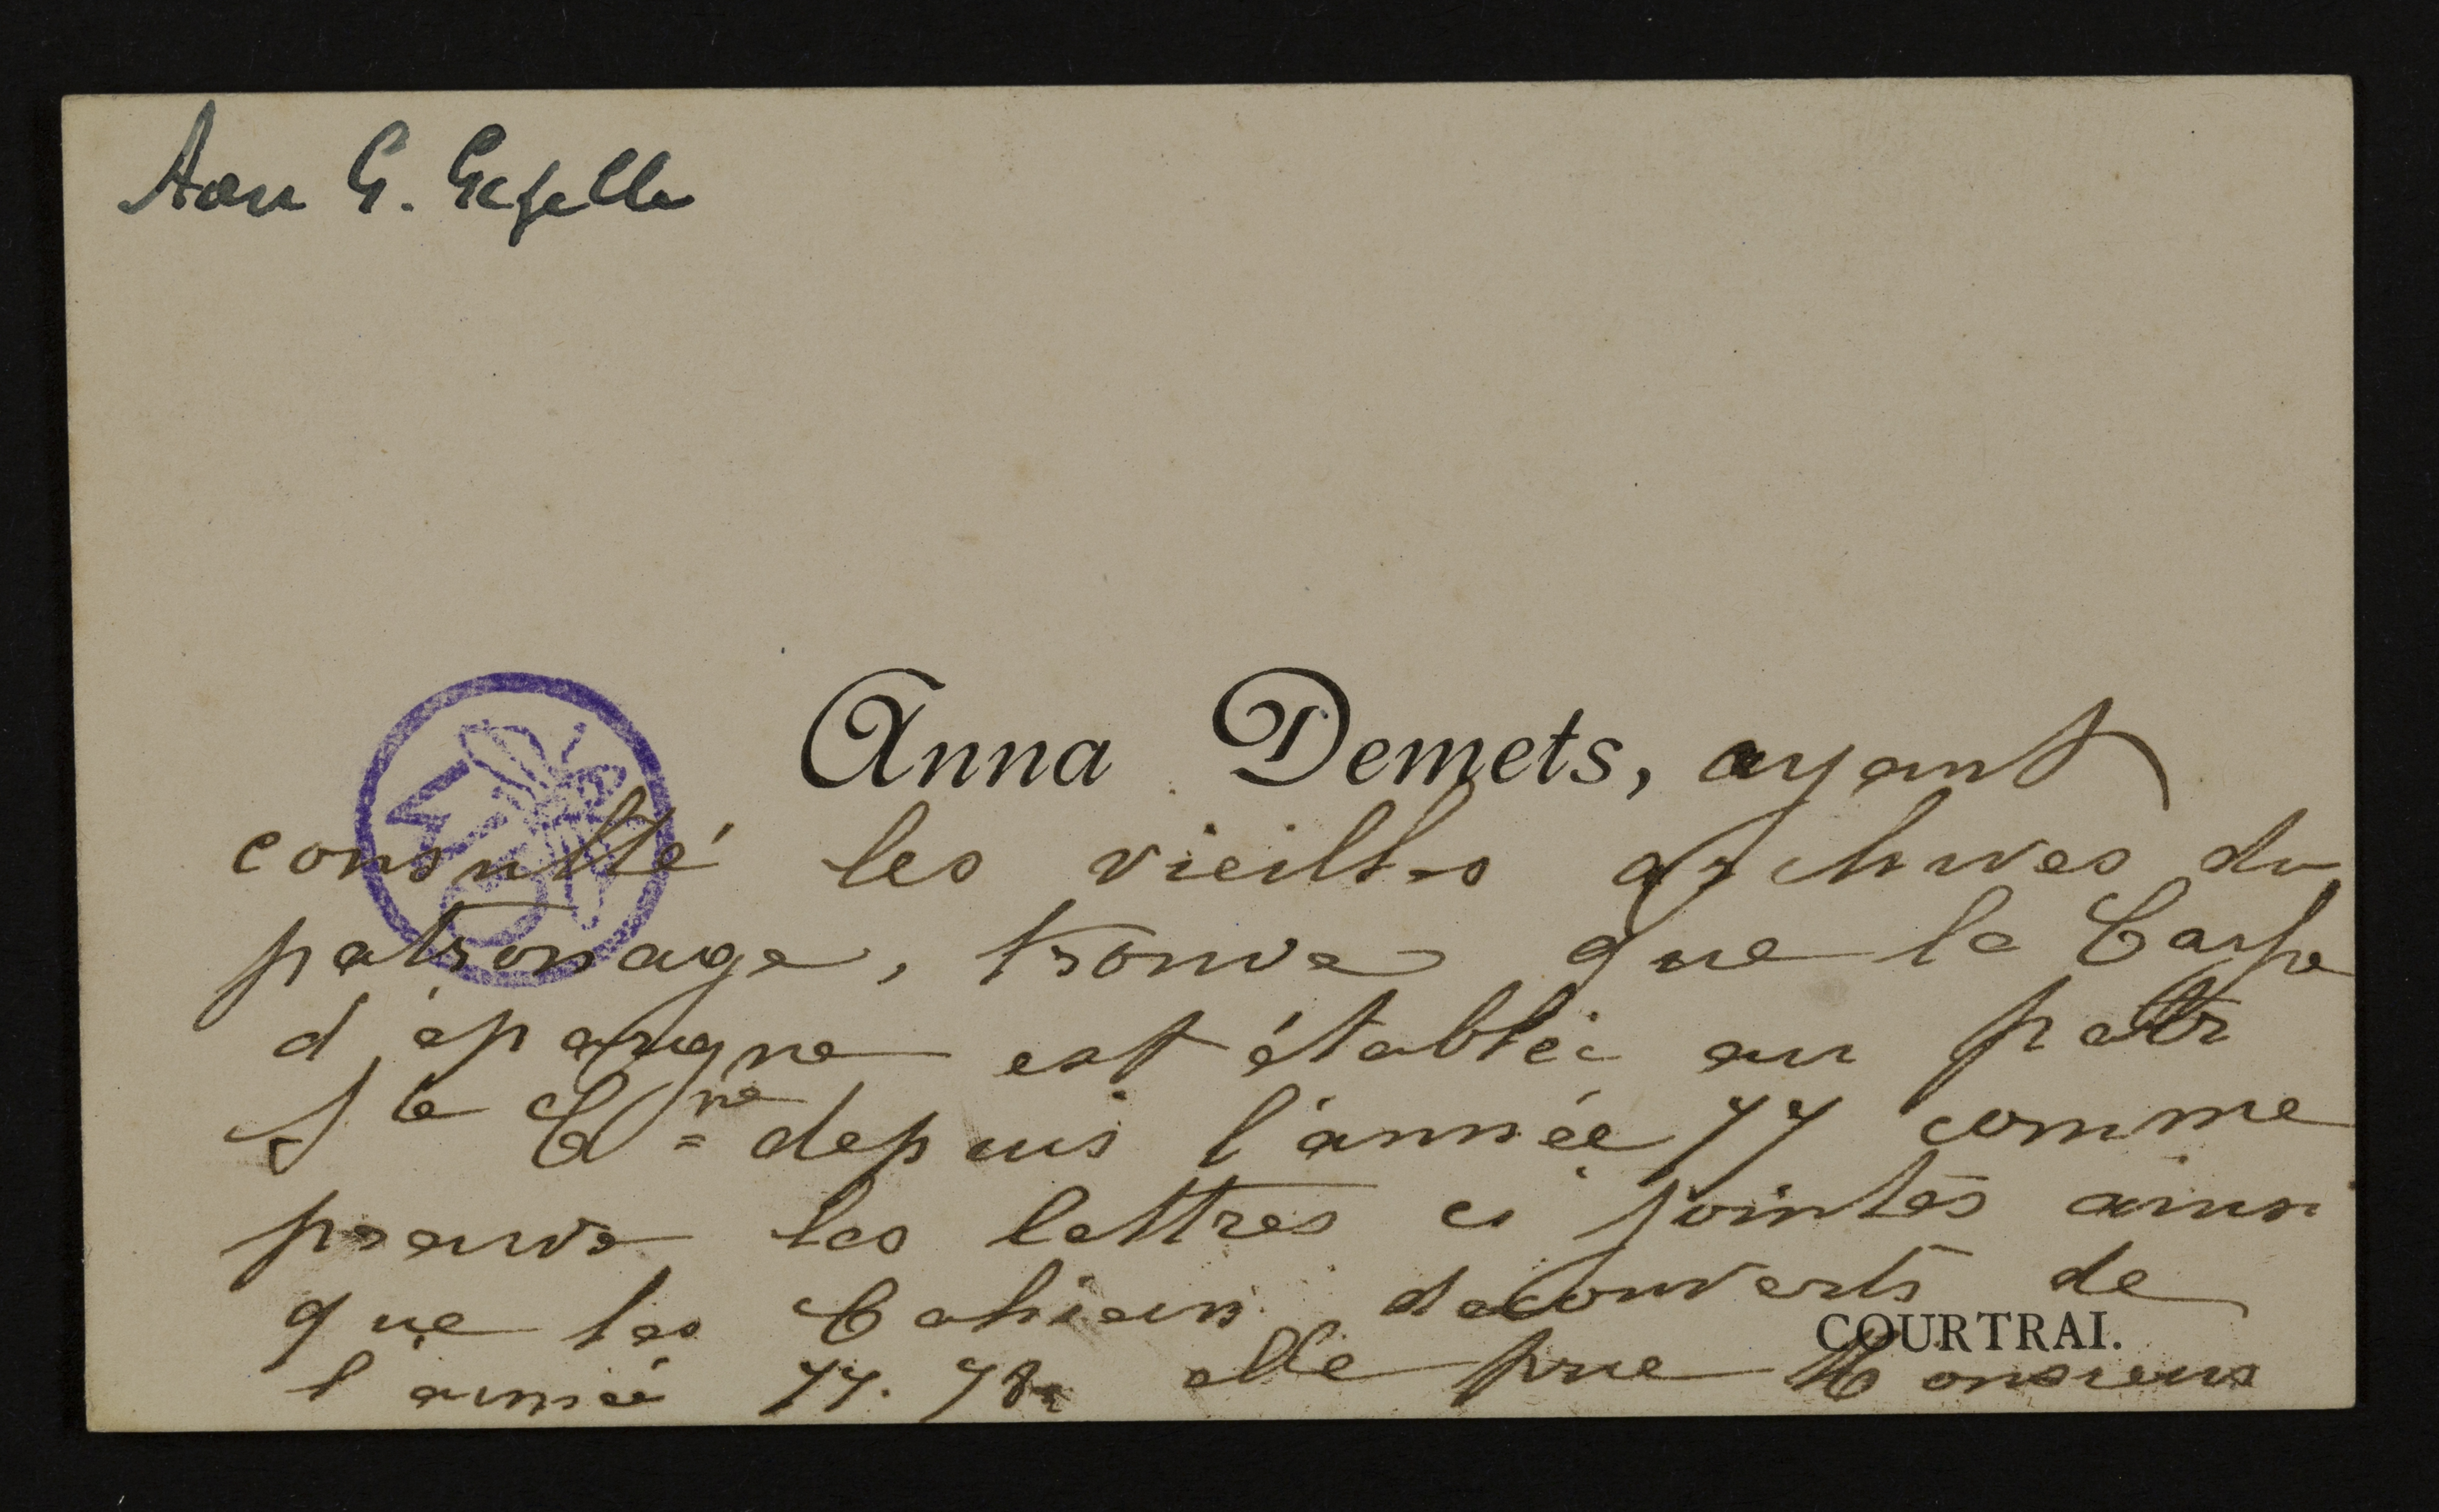 Aan G. Gezelle
Anna Demets, ayant
consulté les vieilles archives du
patronage, trouve que la Caisse
d'épargne est établie au patr
Ste Cne depuis l'année 77 comme
preuve les lettres ci jointes ainsi
que les Cahiers découverts de
COURTRAI.
l'année 77. 78 elle prie Monsieur